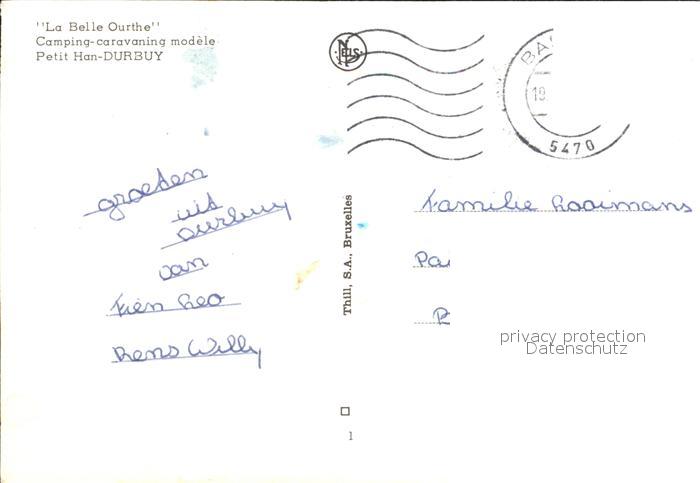 "La Belle Ourthe"
Camping-caravaning modèle
Petit Han-DURBUY
NELS
BA
18
5470
groeten
uit
Durbuy
van
Fien Leo
Rens Willy
Thill, S.A., Bruxelles
Familie Looimans
Pa
P
privacy protection
Datenschutz
1